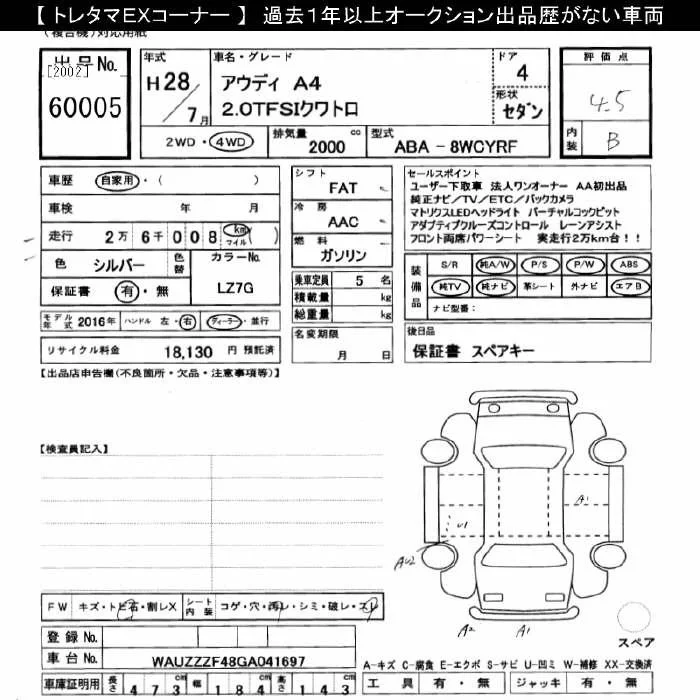 【 トレタマEXコーナー 】 過去１年以上オークション出品歴がない車両
(複合機)対応用紙
出品No.
[2002]
60005
年式
H28/7月
車名・グレード
アウディ A4
2.0TFSIクワトロ
ドア
4
形状
セダン
評価点
4.5
内装
B
2WD・4WD
排気量 2000 cc
型式 ABA - 8WCYRF
車歴 自家用・( )
車検 年 月
走行 2万 6千 008 km マイル ( )
色 シルバー
色替
カラーNo. LZ7G
保証書 有・無
モデル年式 2016年 ハンドル 左・右 ディーラー・並行
リサイクル料金 18,130 円 預託済
シフト FAT
冷房 AAC
燃料 ガソリン
乗車定員 5 名
積載量 kg
総重量 kg
名変期限
月 日
セールスポイント
ユーザー下取車 法人ワンオーナー AA初出品
純正ナビ／TV／ETC／バックカメラ
マトリクスLEDヘッドライト バーチャルコックピット
アダプティブクルーズコントロール レーンアシスト
フロント両席パワーシート 実走行2万km台！！
装備品
S/R 純A/W P/S P/W ABS
純TV 純ナビ 革シート 外ナビ エアB
ナビ型番：
後日品
保証書 スペアキー
【出品店申告欄(不良箇所・欠品・注意事項等)】
【検査員記入】
A1
U1
AU2
A2
A1
スペア
FW キズ・トビ石・割レX
シート内装 コゲ・穴・汚レ・シミ・破レ・スレ
登録 No.
車台 No. WAUZZZF48GA041697
車庫証明用 長さ 473 幅 184 高さ 143
A-キズ C-腐食 E-エクボ S-サビ U-凹ミ W-補修 XX-交換済
工具 有・無 ジャッキ 有・無